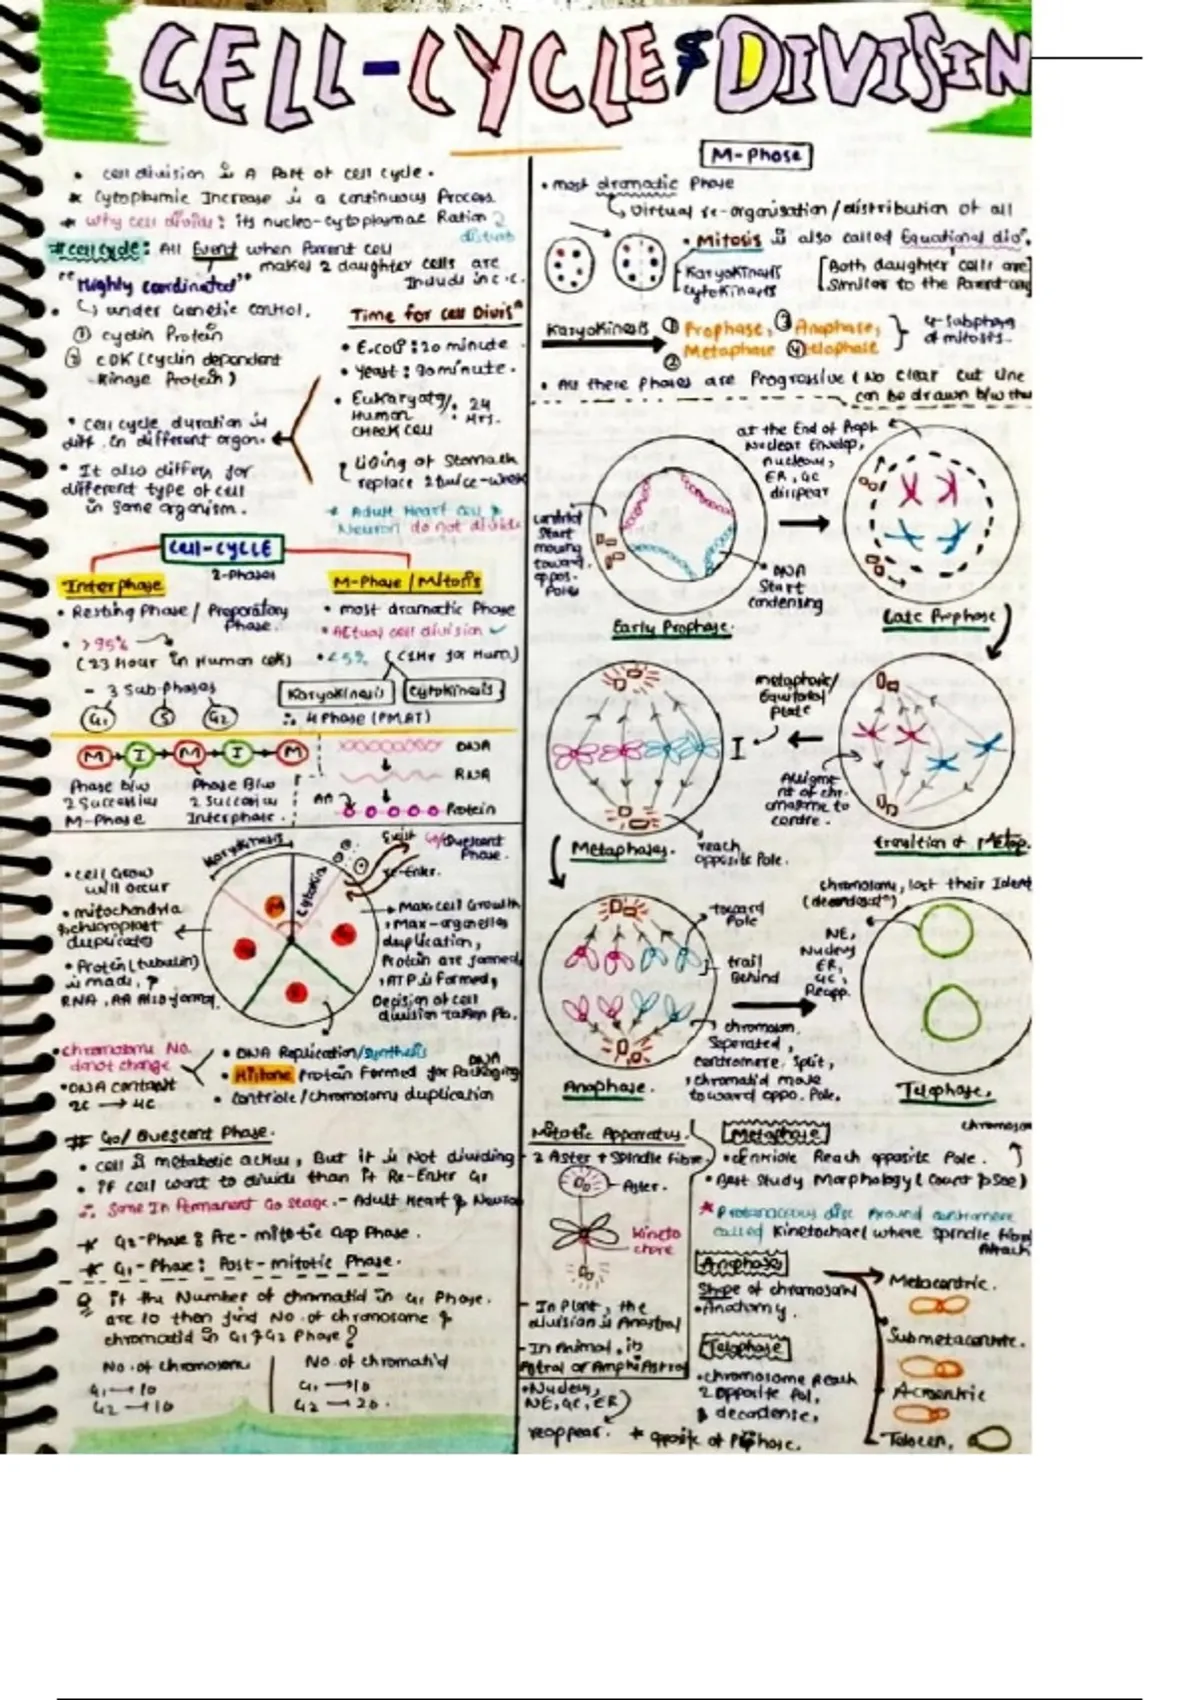 CELL-CYCLE & DIVISIN
• cell division is A Part of cell cycle.
* Cytoplasmic Increase is a continuous Process
* why cell divide: its nucleo-cytoplasmic Ration
disturb
# cell cycle: All Event when Parent cell
makes 2 daughter cells are
Includ in c.c.
"Highly coordinated"
• under Genetic control.
① cyclin Protein
② CDK (cyclin dependent
Kinase Protein)
• cell cycle duration is
diff. in different organ.
• It also differs for
different type of cell
in same organism.
Time for cell Divisn
• E.coli: 20 minute
• Yeast: 90 minute.
• Eukaryots/ : 24
Human Hrs.
cheek cell
Lining of Stomach
replace twice-week
* Adult Heart cell &
Neuron do not divide
Cell-CYCLE
2-Phases
Interphase
• Resting Phase / Preparatory
Phase.
• >95%
(23 Hour in Human cell)
- 3 Sub-Phases
G1 S G2
M-Phase / Mitosis
• most dramatic Phase
• Actual cell division
• <5% (1Hr for Hum.)
Karyokinesis Cytokinesis
∴ 4 Phase (PMAT)
M I M I M
Phase b/w
2 Successive
M-Phase
Phase B/w
2 Successive
Interphase.
DNA
RNA
AA
Protein
Karyokinesis
Exist G0/Quescent
Phase.
re-Enter.
• cell Grow
will occur
• mitochondria
& chloroplast
duplicates
• Protein (tubulin)
is made,
RNA, AA also formed
M
• Max cell Growth
• Max-organelles
duplication,
Protein are formed
, ATP is formed,
Decision of cell
division taken Pla.
• chromosome No.
donot change
• DNA content
2C → 4C
• DNA Replication/Synthesis
• Histone Protein Formed for DNA Packaging
• Centriole / chromosoms duplication
# G0/ Quescent Phase.
• cell is metabolic active, But it is Not dividing
• if cell want to divide than it Re-Enter G1
∴ Some In Permanent G0 stage. - Adult Heart & Neuron
* G2-Phase: Pre-mitotic Gap Phase.
* G1-Phase: Post-mitotic Phase.
Q if the Number of chromatid in G1 Phase.
are 10 then find No. of chromosome &
chromatid in G1 & G2 Phase?
No. of chromosome
G1 → 10
G2 → 10
No. of chromatid
G1 → 10
G2 → 20.
M-Phase
• most dramatic Phase
Virtual re-organisation/distribution of all
• Mitosis is also called Equational dion.
Karyokinesis
Cytokinesis
[Both daughter cells are]
[Similar to the Parent cell]
Karyokinesis
① Prophase, ③ Anaphase,
Metaphase ④ Telophase
②
4-Subphase
of mitosis.
• All these Phases are Progressive (No clear cut line
can be drawn b/w tha
at the End of Proph
Nuclear Envelop,
nucleous,
ER, GC
disapear
centriol
Start
moving
toward
oppos.
Pole
• DNA
Start
condensing
Early Prophase.
Late Prophase
metaphasic/
Equatorial
Plate
Alignme
nt of chr-
omosome to
centre.
Metaphase.
reach
opposite Pole.
Transition of Metap.
chromosome, lost their Ident
(decondensn)
toward
Pole
trail
Behind
NE,
Nucleus
ER,
GC,
Reapp.
chromosom.
Seperated,
centromere split,
, chromatid move
toward oppo. Pole.
Anaphase.
Telophase.
Mitotic Apparatus.
2 Aster + Spindle fibre
Aster.
kineto
chore
- In Plant, the
division is Anastral
- In Animal, its
Astral or AmphiAstral
• Nucleus,
NE, GC, ER
reappear. * opposite of Prophase.
Metaphase
chromosom
• centriole Reach opposite Pole.
• Best Study Morphology (count & see)
* Protenaceous disc Around centromere
called Kinetochael where spindle fibre
Attach
Anaphase
Shape of chromosome
• Anatomy.
Telophase
• chromosome Reach
2 opposite Pol,
& decondense,
Metacentric.
Submetacentric.
Acrocentric
Telocen.